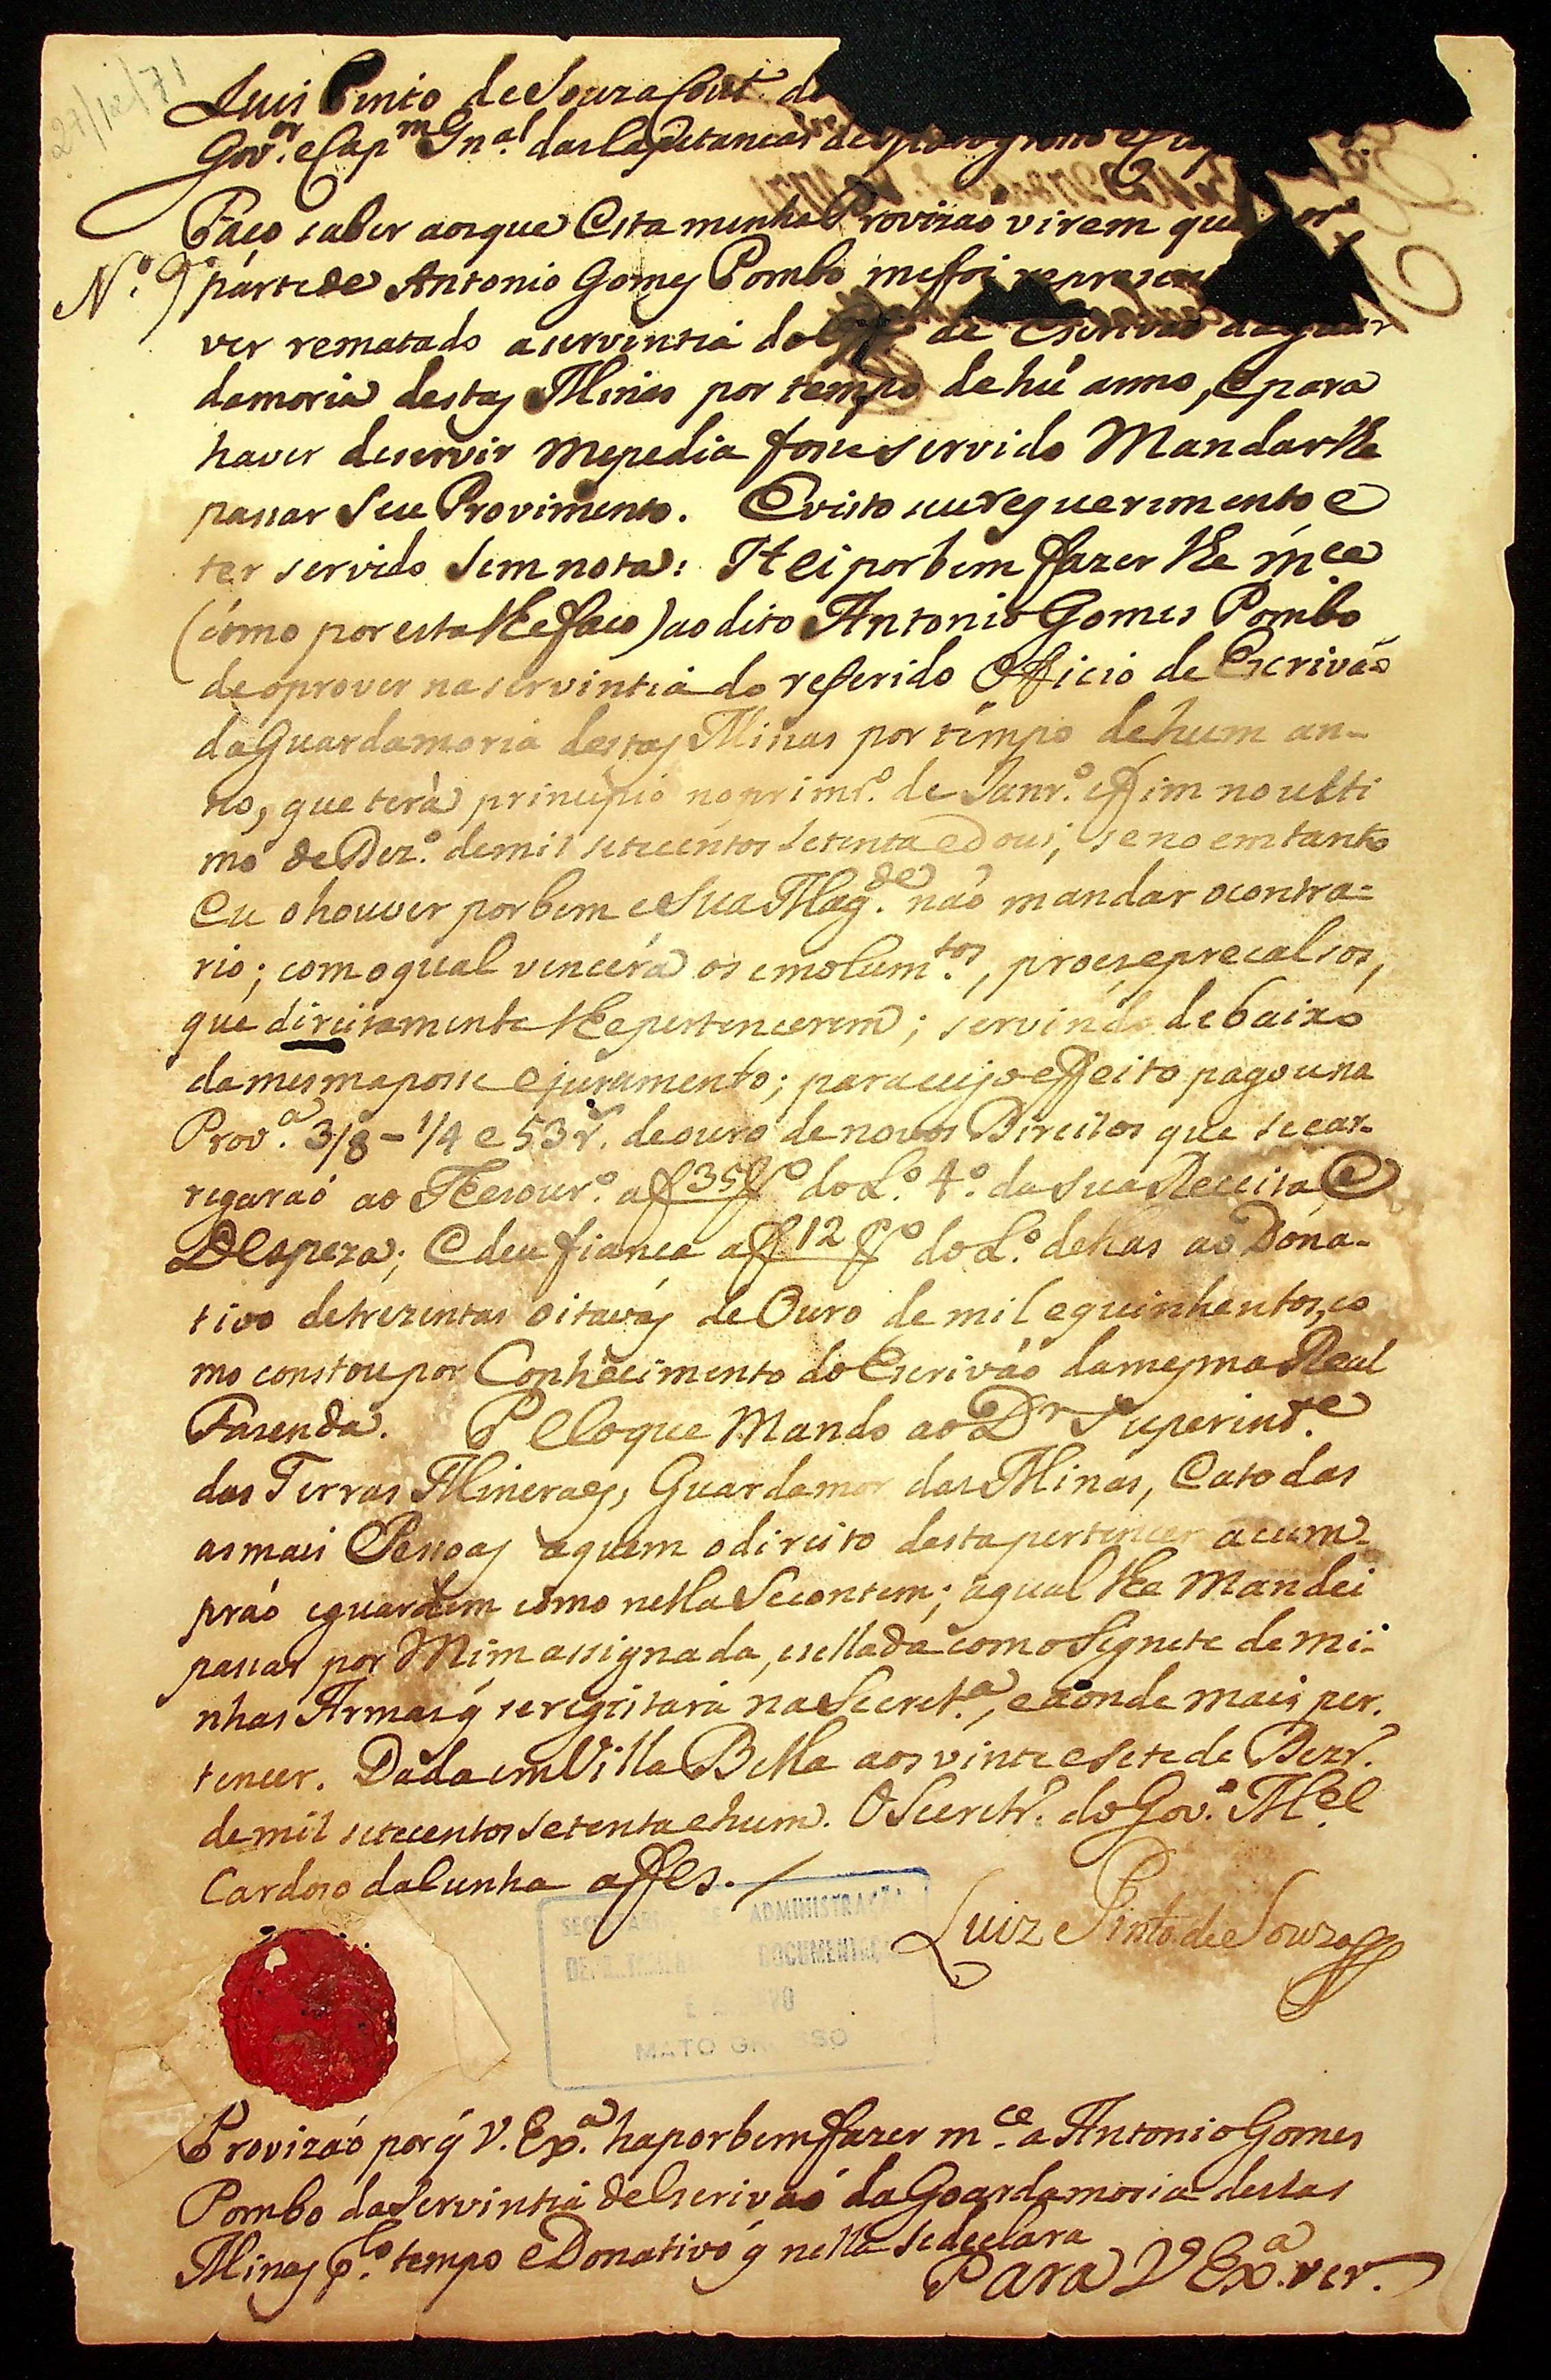 27/12/71
Luis Pinto de Souza Cout.º de
Gov.or e Cap.m Gn.al das Capitancas de Matogrosso e Cuy
Faço saber aos que esta minha Provizaõ virem que por
N.º 9º parte de Antonio Gomes Pombo me foi represen
ver rematado a serventia do Off.º de Escrivaõ da Guar
damoria destas Minas por tempo de hũ anno, e para
haver deservir me pedia fosse servido Mandarlhe
passar seu Provimento. E visto seu requerimento e
ter servido sem nota: Hei por bem fazer lhe m.ce
(como por esta lhe faço) ao dito Antonio Gomes Pombo
de o prover na serventia do referido Officio de Escrivaõ
da Guardamoria destas Minas por tempo de hum an-
no, que terà principio no prim.º de Janr.º e fim no ulti
mo de Dez.º de mil setecentos setenta e dous, se no emtanto
Eu o houver por bem e Sua Mag.de naõ mandar o contra=
rio; com o qual vencerá os emolum.tos, proes, e precalsos,
que direitamente lhe pertencerem; servindo debaixo
da mesma posse e juramento; para cujo effeito pagou na
Prov.a 3/8 - 1/4 e 53 r. de ouro de novos Direitos que se car-
regaraõ ao Thesour.º a f 35 fº do L.º 4.º da sua Receita e
Despeza; e deu fiança a f 12 fº do L.º dellas ao Dona-
tivo de trezentas oitavas de Ouro de mil e quinhentos, co
mo constou por Conhecimento do Escrivaõ da mesma Real
Fasenda. Pello que Mando ao D.r Superint.e
das Terras Mineraes, Guardamor das Minas, e a todas
as mais Pessoas a quem o direito desta pertencer a cum-
praõ e guardem como nella se contem; a qual lhe mandei
passar por Mim assignada, e sellada com o Signete de mi-
nhas Armas q̃ se registará na Secret.a, e aonde mais per-
tencer. Dada em Villa Bella aos vinte e sete de Dezr.º
de mil setecentos setenta e hum. O Secretr.º do Gov.º M.el
Cardoso da Cunha a fes. /
Luiz Pinto de Souza
SECRETARIA DE ADMINISTRAÇÃO
DEPARTAMEN DOCUMENTAÇ
E VO
MATO GROSSO
Provizaõ por q̃ V. Ex.a ha por bem fazer m.ce a Antonio Gomes
Pombo da Serventia de Escrivaõ da Goardamoria destas
Minas p.lo tempo e Donativo q̃ nella se declara
Para V Ex.a ver.